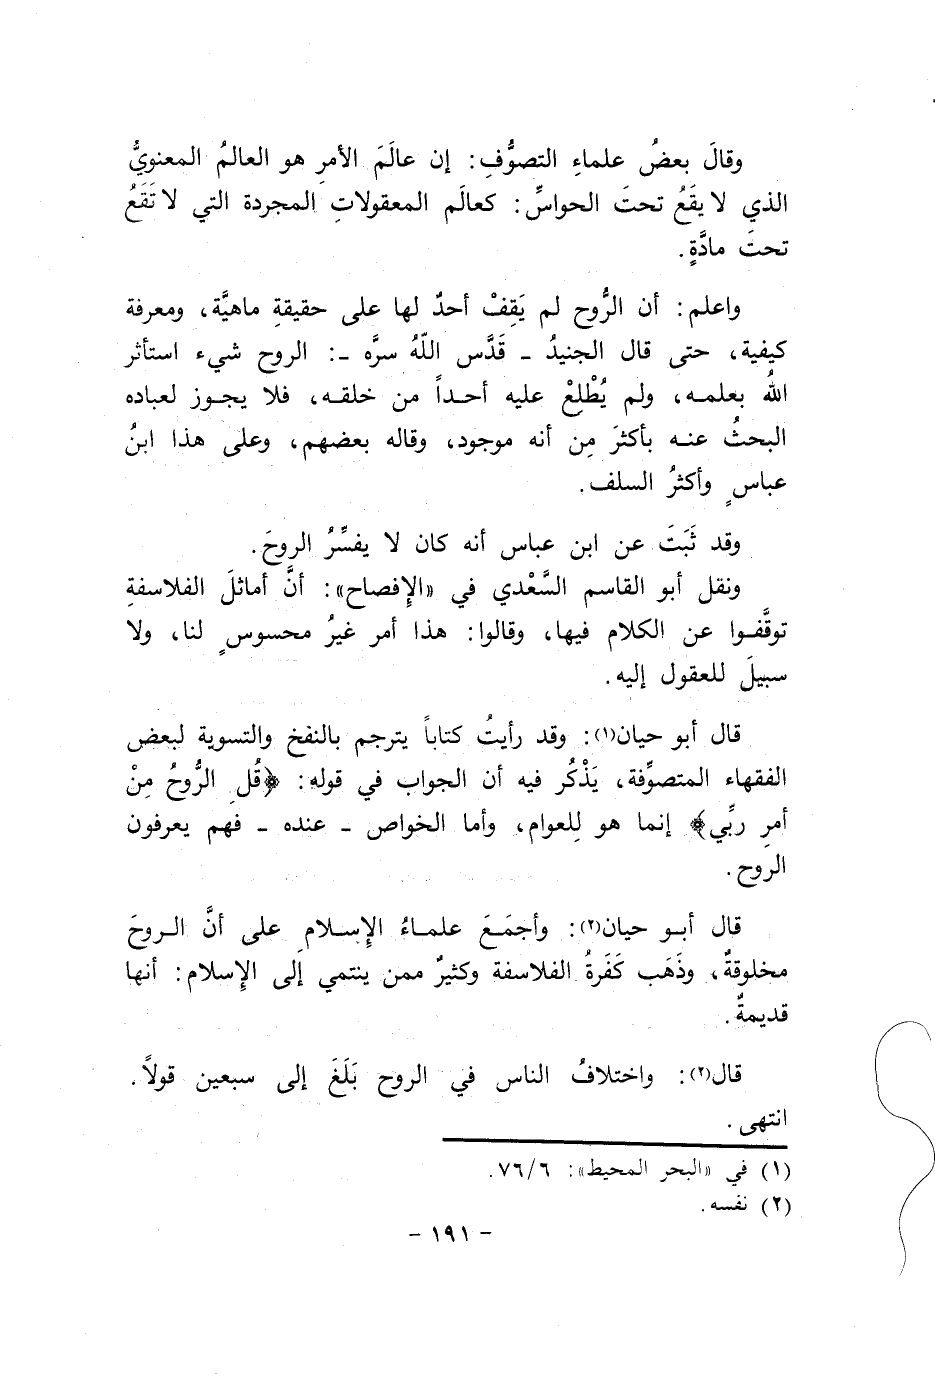 وقالَ بعضُ علماءِ التصوُّفِ: إن عالَمَ الأمرِ هو العالمُ المعنويُّ
الذي لا يقَعُ تحتَ الحواسِّ: كعالَم المعقولاتِ المجردة التي لا تَقَعُ
تحتَ مادَّةٍ.
واعلم: أن الرُّوح لم يَقِفْ أحدٌ لها على حقيقةِ ماهيَّة، ومعرفة
كيفية، حتى قال الجنيدُ ـ قَدَّس اللّهُ سرَّه ـ: الروح شيء استأثر
اللهُ بعلمه، ولم يُطْلِعْ عليه أحداً من خلقه، فلا يجوز لعباده
البحثُ عنه بأكثرَ مِن أنه موجود، وقاله بعضهم، وعلى هذا ابنُ
عباسٍ وأكثرُ السلف.
وقد ثَبَتَ عن ابن عباس أنه كان لا يفسِّرُ الروحَ.
ونقل أبو القاسم السَّعْدي في «الإِفصاح»: أنَّ أماثلَ الفلاسفةِ
توقَّفوا عن الكلام فيها، وقالوا: هذا أمر غيرُ محسوسٍ لنا، ولا
سبيلَ للعقول إليه.
قال أبو حيان(١): وقد رأيتُ كتاباً يترجم بالنفخ والتسوية لبعض
الفقهاء المتصوِّفة، يَذْكُر فيه أن الجواب في قوله: ﴿قُلِ الرُّوحُ مِنْ
أمرِ ربِّي﴾ إنما هو لِلعوام، وأما الخواص ـ عنده ـ فهم يعرفون
الروح.
قال أبو حيان(٢): وأجمَعَ علماءُ الإِسلامِ على أنَّ الروحَ
مخلوقةٌ، وذَهَب كَفَرةُ الفلاسفة وكثيرٌ ممن ينتمي إلى الإِسلام: أنها
قديمةٌ.
قال(٢): واختلافُ الناس في الروح بَلَغَ إلى سبعين قولاً.
انتهى.
(١) في «البحر المحيط»: ٧٦/٦.
(٢) نفسه.
- ١٩١ -